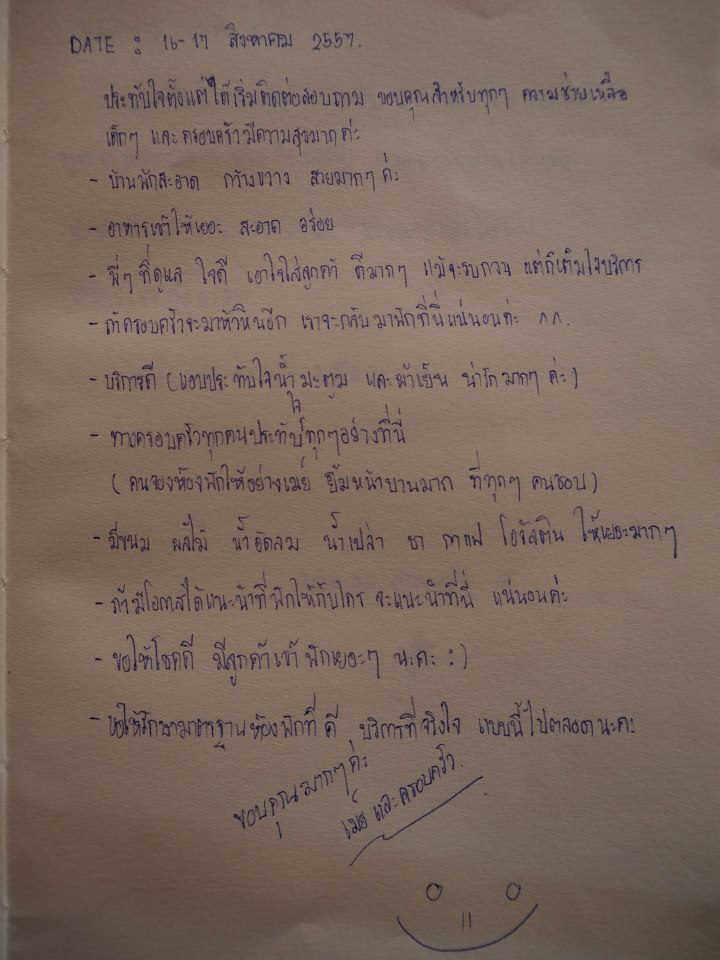 DATE : 16-17 สิงหาคม 2557.
ประทับใจตั้งแต่ได้เริ่มติดต่อสอบถาม ขอบคุณสำหรับทุกๆ ความช่วยเหลือ
เด็กๆ และครอบครัวมีความสุขมากค่ะ
- บ้านพักสะอาด กว้างขวาง สวยมากๆ ค่ะ
- อาหารเช้าให้เยอะ สะอาด อร่อย
- พี่ๆ ที่ดูแล ใจดี เอาใจใส่ลูกค้า ดีมากๆ แม้จะรบกวน แต่ก็เต็มใจบริการ
- ถ้าครอบครัวจะมาหัวหินอีก เราจะกลับมาพักที่นี่แน่นอนค่ะ ^^.
- บริการดี (แอบประทับใจน้ำมะตูม และผ้าเย็น น่ารักมากๆ ค่ะ)
- ทางครอบครัวทุกคนประทับใจทุกๆอย่างที่นี่
( คนจองห้องพักให้อย่างเมย์ ยิ้มหน้าบานมาก ที่ทุกๆ คนชอบ )
- มีขนม ผลไม้ น้ำอัดลม น้ำเปล่า ชา กาแฟ โอวัลติน ให้เยอะมากๆ
- ถ้ามีโอกาสได้แนะนำที่พักให้กับใคร จะแนะนำที่นี่ แน่นอนค่ะ
- ขอให้โชคดี มีลูกค้าเข้าพักเยอะๆ นะคะ :)
- ขอให้รักษามาตรฐานห้องพักที่ดี บริการที่จริงใจ แบบนี้ไปตลอดนะคะ
ขอบคุณมากๆ ค่ะ
เมย์ และครอบครัว.